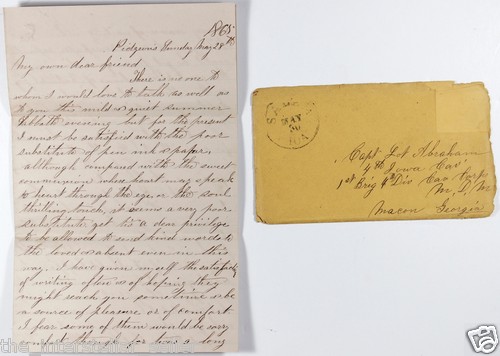 1865
Pidgeons Sunday May 28th
My own dear friend
There is no one to
whom I would love to talk as well as
to you this mild & quiet summer
Sabbath evening but for the present
I must be satisfied with the poor
substitute of pen ink & paper,
although compared with the sweet
communion when heart may speak
to heart through the eye or the soul
thrilling touch, it seems a very poor
substitute, yet tis a dear privilege
to be allowed to send kind words to
the loved & absent even in this
way. I have given myself the satisfaction
of writing often & hoping they
might reach you sometime & be
a source of pleasure or of comfort
I fear some of them would be very
comfort though for twas a long
MAY
30
Capt Lot Abraham
4th Iowa Cav
1st Brig 4th Div Cav Corps
M. D. M.
Macon Georgia
the_interstellar_seller